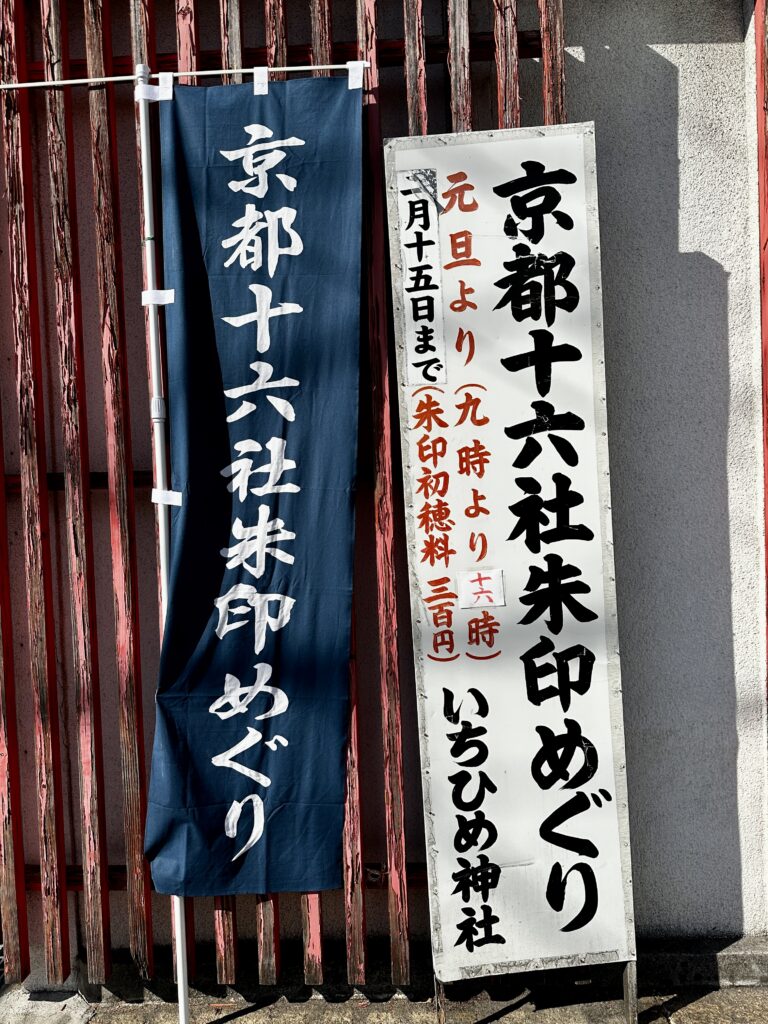 京都十六社朱印めぐり
元旦より(九時より十六時)
二月十五日まで(朱印初穂料 三百円)
いちひめ神社
京都十六社朱印めぐり